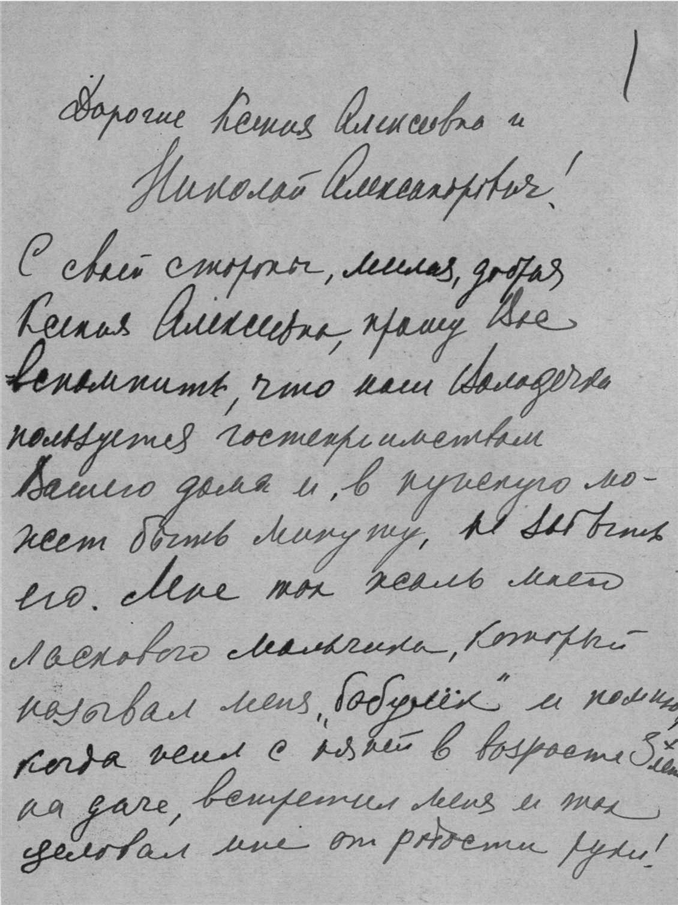 1
Дорогие Ксения Алексеевна и
Николай Александрович!
С своей стороны, милая, добрая
Ксения Алексеевна, прошу Вас
вспомнить, что наш Володечка
пользуется гостеприимством
Вашего дома и, в нужную мо-
жет быть минуту, не забыть
его. Мне так жаль моего
ласкового мальчика, который
называл меня „бабулёк" и помню,
когда жил с няней в возрасте 3х лет
на даче, встретил меня и так
целовал мне от радости руки!